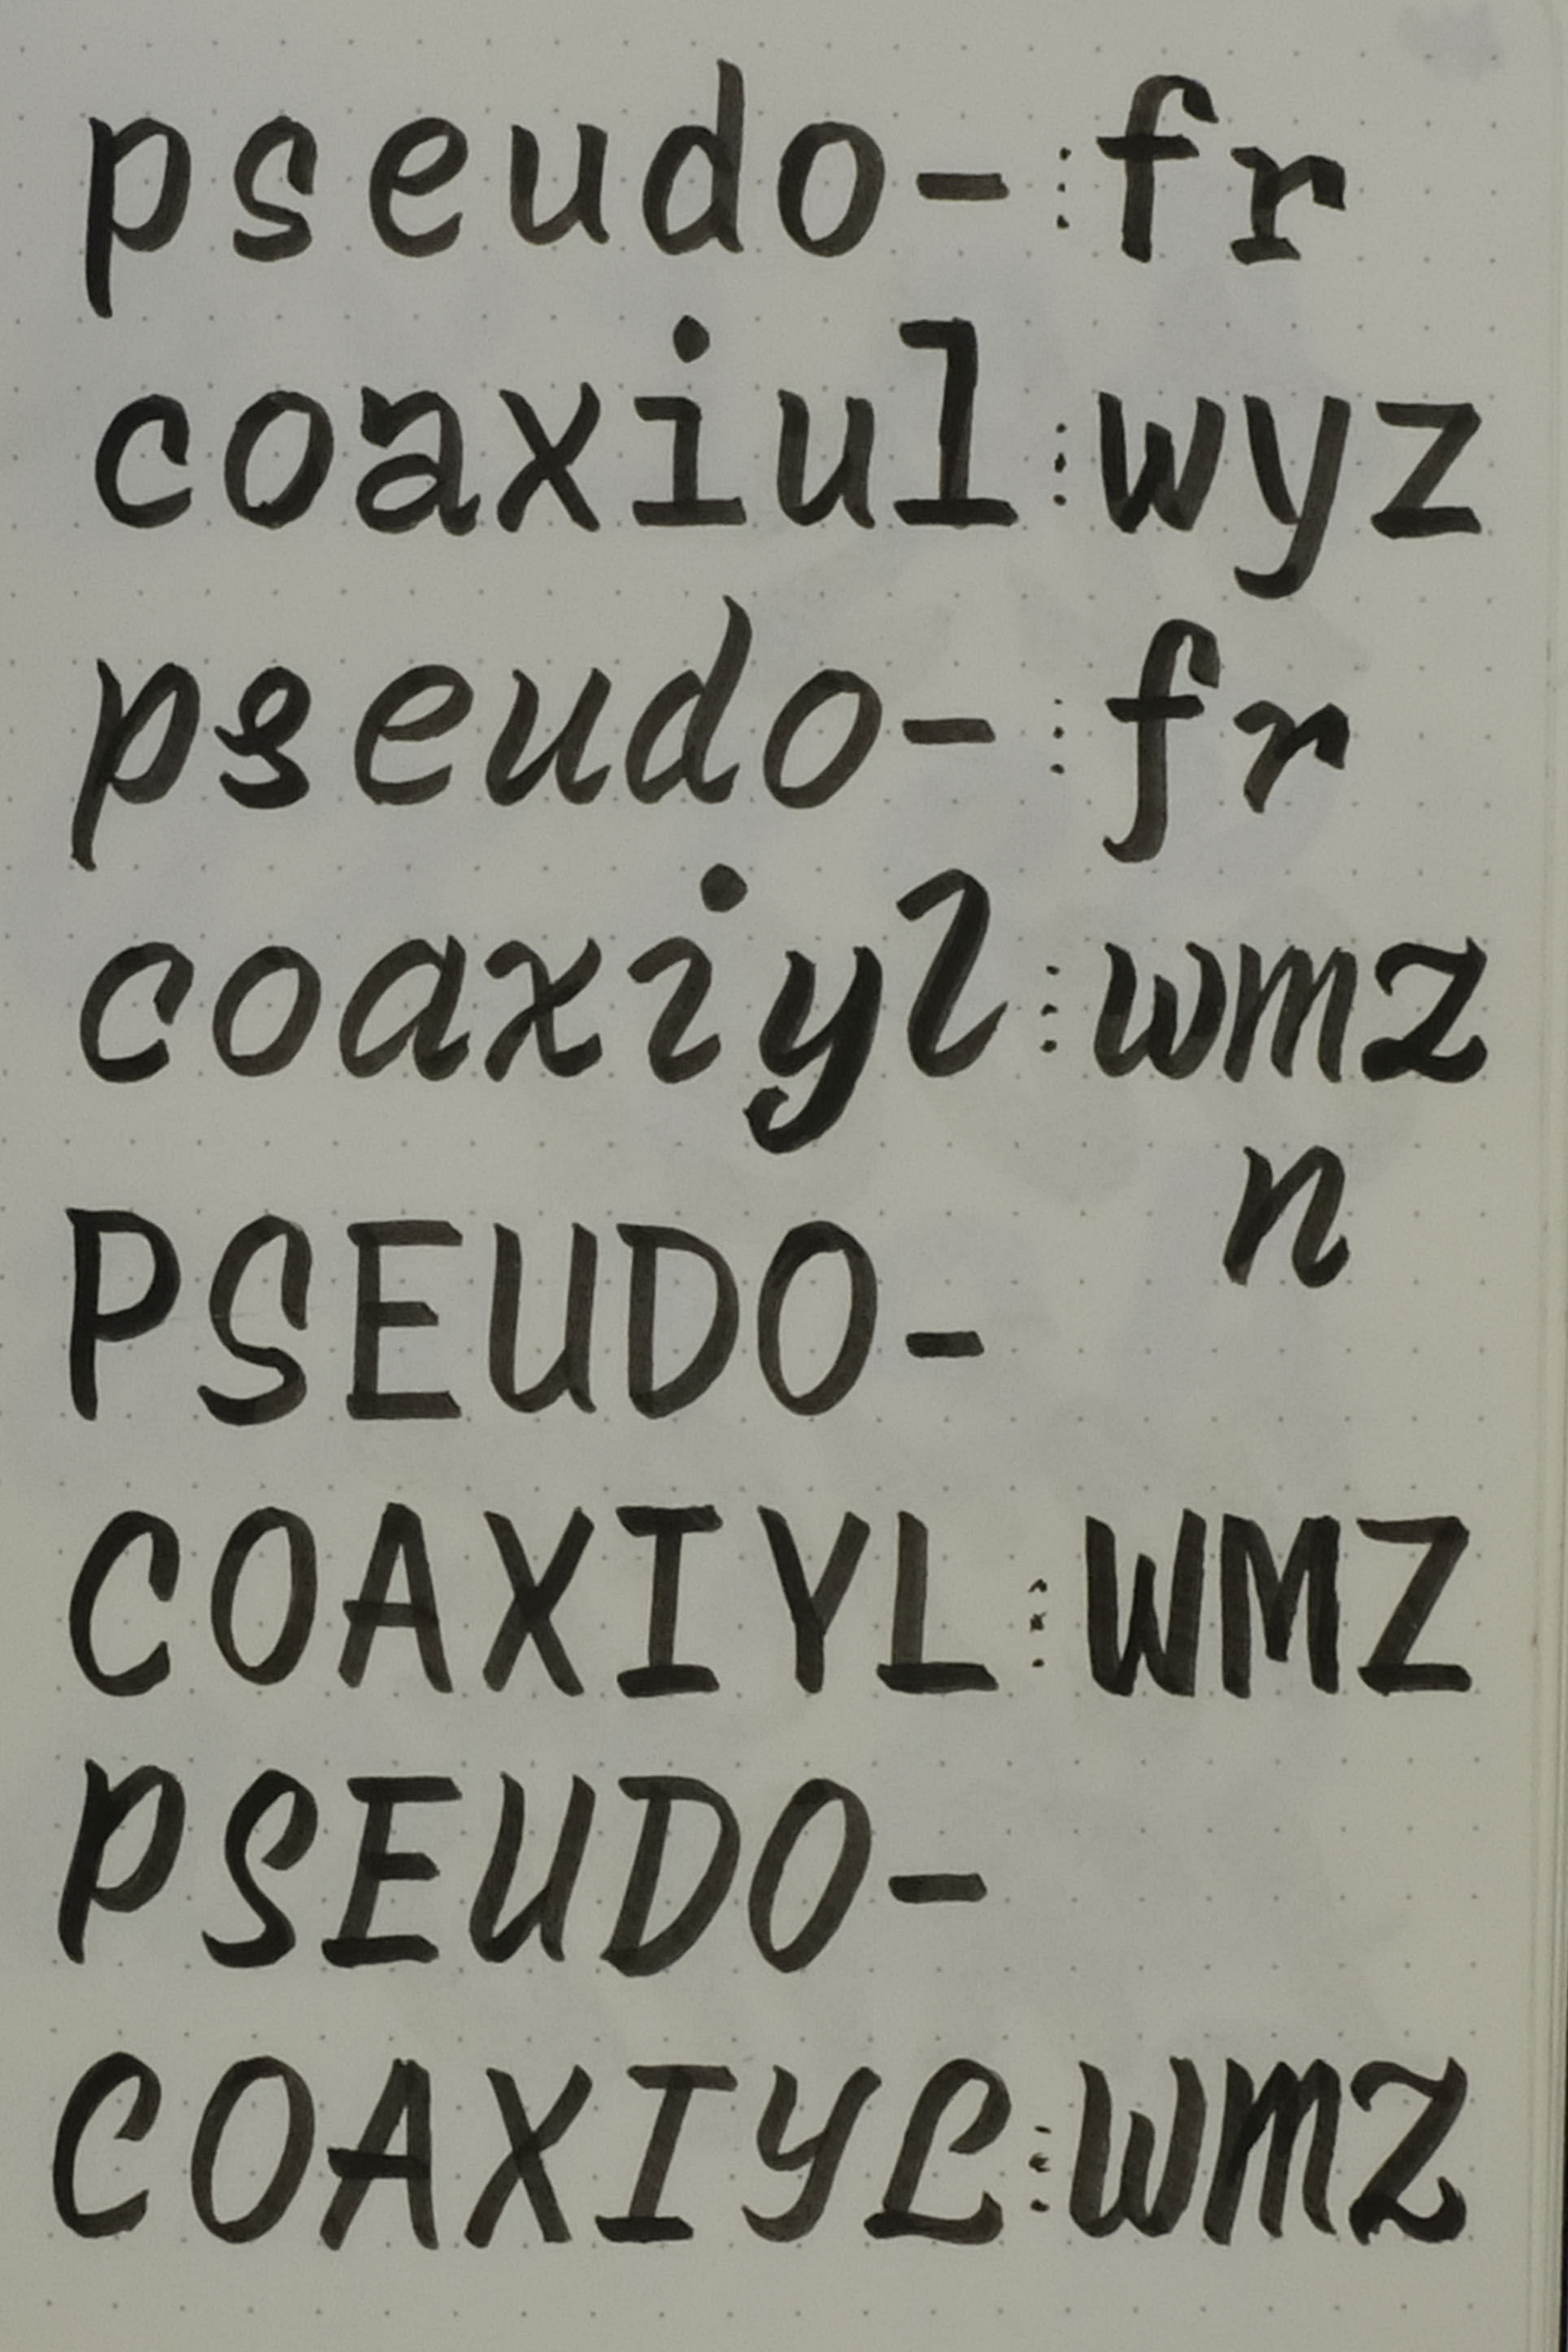 pseudo- ⋮ fr
coaxiul ⋮ wyz
pseudo- ⋮ fr
coaxiyl ⋮ wmz
n
PSEUDO-
COAXIYL ⋮ WMZ
PSEUDO-
COAXIYL ⋮ WMZ